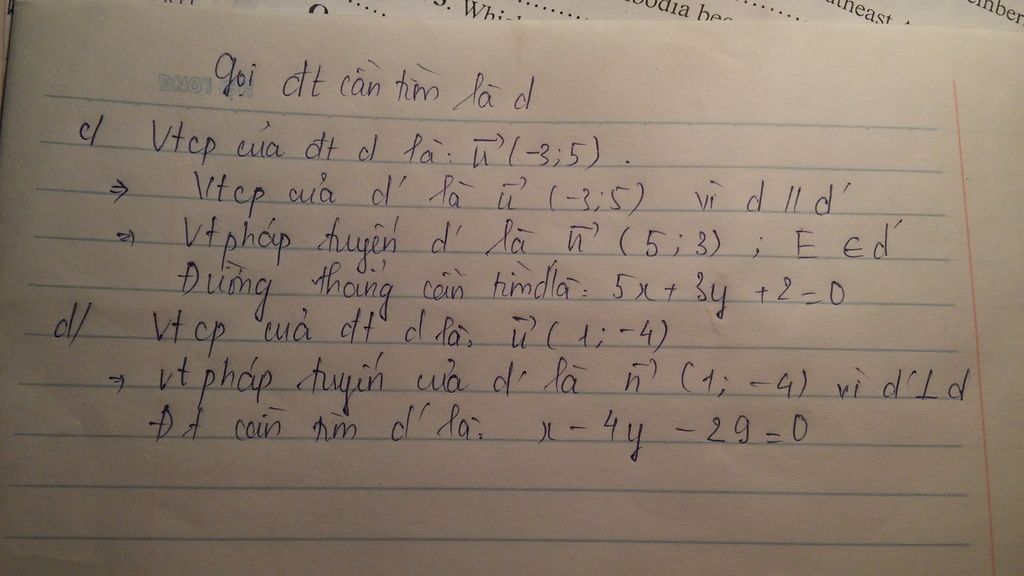 3. Which
bodia bec
utheast A
ember
LONG
Gọi đt cần tìm là d
c/ Vtcp của đt d là: u⃗ (-3;5).
=> Vtcp của d' là u⃗ (-3;5) vì d // d'
=> Vt pháp tuyến d' là n⃗ (5;3) ; E ∈ d'
Đường thẳng cần tìm d' là: 5x + 3y + 2 = 0
d/ Vtcp của đt d là: u⃗ (1; -4)
=> vt pháp tuyến của d' là n⃗ (1; -4) vì d' ⊥ d
Đt cần tìm d' là: x - 4y - 29 = 0